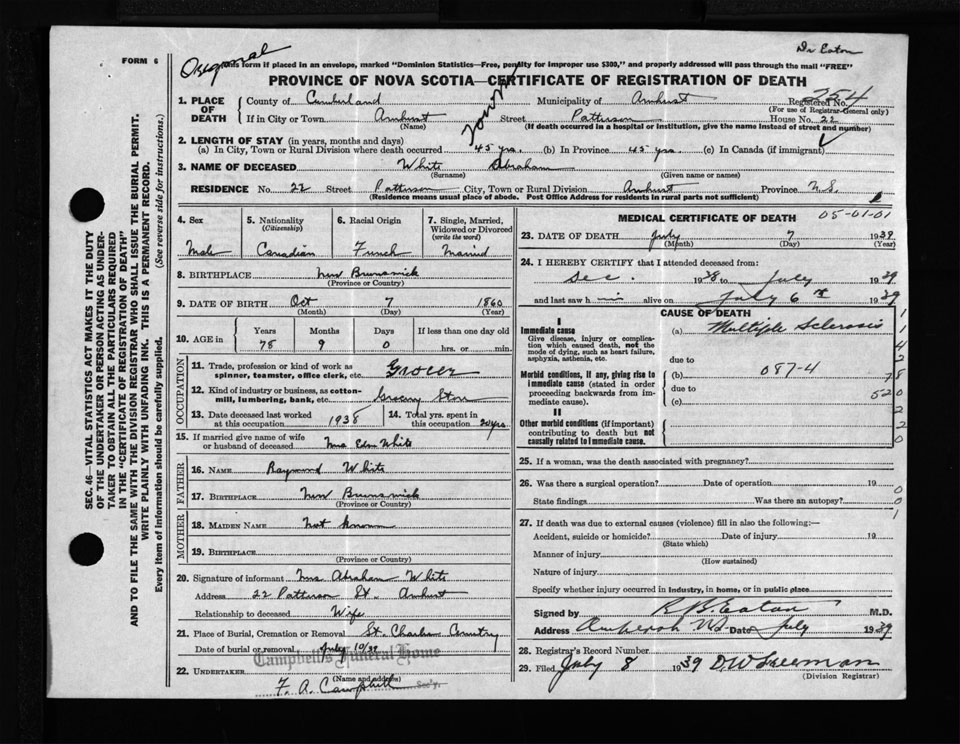 Dr Eaton
FORM 6
Original
This form if placed in an envelope, marked "Dominion Statistics—Free, penalty for improper use $300," and properly addressed will pass through the mail "FREE"
PROVINCE OF NOVA SCOTIA—CERTIFICATE OF REGISTRATION OF DEATH
254
1. PLACE OF DEATH
County of Cumberland Municipality of Amherst Registered No.
(For use of Registrar-General only)
If in City or Town Amherst Street Patterson House No. 22
(Name) (If death occurred in a hospital or institution, give the name instead of street and number)
Town
2. LENGTH OF STAY (in years, months and days)
(a) In City, Town or Rural Division where death occurred 45 yrs. (b) In Province 45 yrs. (c) In Canada (if immigrant)
3. NAME OF DECEASED White Abraham
(Surname) (Given name or names)
RESIDENCE No. 22 Street Patterson City, Town or Rural Division Amherst Province N.S.
(Residence means usual place of abode. Post Office Address for residents in rural parts not sufficient)
4. Sex
Male
5. Nationality
(Citizenship)
Canadian
6. Racial Origin
French
7. Single, Married, Widowed or Divorced
(write the word)
Married
8. BIRTHPLACE New Brunswick
(Province or Country)
9. DATE OF BIRTH Oct 7 1860
(Month) (Day) (Year)
10. AGE in
Years Months Days If less than one day old
78 9 0 hrs. or min.
OCCUPATION
11. Trade, profession or kind of work as spinner, teamster, office clerk, etc. Grocer
12. Kind of industry or business, as cotton-mill, lumbering, bank, etc. Grocery Store
13. Date deceased last worked at this occupation 1938
14. Total yrs. spent in this occupation yrs
15. If married give name of wife or husband of deceased Mrs White
FATHER
16. NAME Raymond White
17. BIRTHPLACE New Brunswick
(Province or Country)
MOTHER
18. MAIDEN NAME Not known
19. BIRTHPLACE
(Province or Country)
20. Signature of informant Mrs Abraham White
Address 22 Patterson St. Amherst
Relationship to deceased Wife
21. Place of Burial, Cremation or Removal St. Charles Cemetery
Date of burial or removal July 10/39
Campbell's Funeral Home
22. UNDERTAKER F. A. Campbell Sec'y.
(Name and address)
MEDICAL CERTIFICATE OF DEATH
05-01-01
23. DATE OF DEATH July 7 1939
(Month) (Day) (Year)
24. I HEREBY CERTIFY that I attended deceased from:
Dec. 1938 to July 1939
and last saw h im alive on July 6th 1939
CAUSE OF DEATH
I
Immediate cause
Give disease, injury or complication which caused death, not the mode of dying, such as heart failure, asphyxia, asthenia, etc.
(a) Multiple Sclerosis
due to
Morbid conditions, if any, giving rise to immediate cause (stated in order proceeding backwards from immediate cause).
(b) 087-4
due to
(c)
II
Other morbid conditions (if important) contributing to death but not causally related to immediate cause.
1
1
4
2
78
520
2
2
0
25. If a woman, was the death associated with pregnancy?
26. Was there a surgical operation? Date of operation 19
State findings Was there an autopsy?
0
0
1
27. If death was due to external causes (violence) fill in also the following:—
Accident, suicide or homicide? Date of injury 19
(State which)
Manner of injury
(How sustained)
Nature of injury
Specify whether injury occurred in industry, in home, or in public place
Signed by R B Eaton M.D.
Address Amherst NS Date July 1939
28. Registrar's Record Number
29. Filed July 8 1939
(Division Registrar)
SEC. 46—VITAL STATISTICS ACT MAKES IT THE DUTY
OF THE UNDERTAKER OR PERSON ACTING AS UNDER-
TAKER TO OBTAIN ALL THE PARTICULARS REQUIRED
IN THE "CERTIFICATE OF REGISTRATION OF DEATH"
AND TO FILE THE SAME WITH THE DIVISION REGISTRAR WHO SHALL ISSUE THE BURIAL PERMIT.
WRITE PLAINLY WITH UNFADING INK. THIS IS A PERMANENT RECORD.
Every item of information should be carefully supplied. (See reverse side for instructions.)